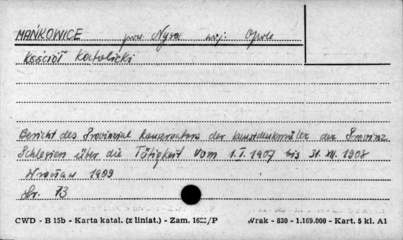 MAŃKOWICE pow. Nysa woj. Opole
Kościół Katolicki
Bericht des Provinzial Konservators der Kunstdenkmäler der Provinz
Schlesien über die Tätigkeit vom 1.I.1907 bis 31.XII.1908
Wrocław 1909
Str. 73
CWD - B 15b - Karta katal. (z liniat.) - Zam. /P Wrak - 830 - 1.165.000 - Kart. 5 kl. A1